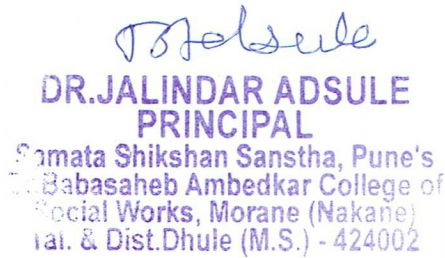 Adsule
DR.JALINDAR ADSULE
PRINCIPAL
Samata Shikshan Sanstha, Pune's
Babasaheb Ambedkar College of
Social Works, Morane (Nakane)
Tal. & Dist.Dhule (M.S.) - 424002